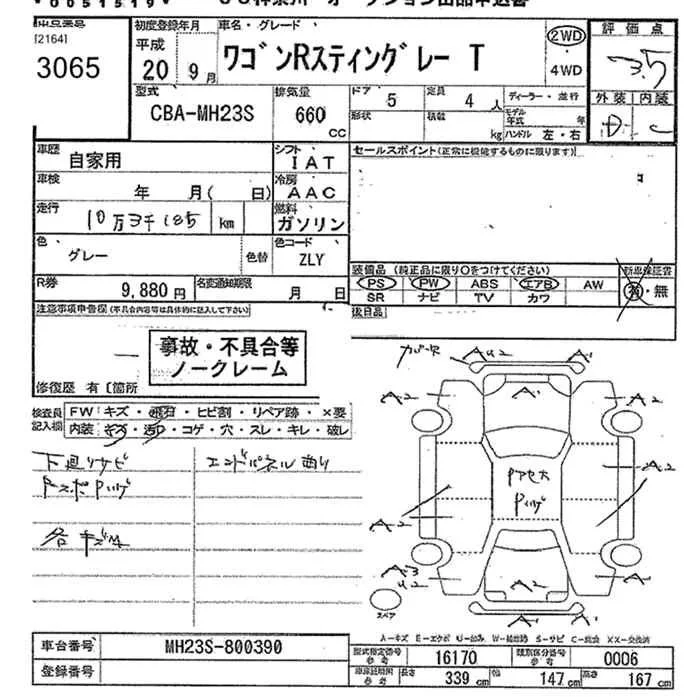 [2164]
3065
初度登録年月
平成
20 9月
車名・グレード
ワゴンRスティングレー T
2WD
4WD
評価点
3.5
外装 内装
D C
型式
CBA-MH23S
排気量
660
CC
ドア 5
定員 4 人
ディーラー・並行
形状
積載 kg
モデル年式 年
ハンドル 左・右
車歴
自家用
シフト
IAT
セールスポイント(正常に機能するものに限ります)
車検
年 月( 日)
冷房
AAC
走行
10万3千185 km
燃料
ガソリン
色
グレー
色替
色コード
ZLY
R券
9,880円
名変通知期限
月 日
装備品 (純正品に限り○をつけてください)
PS PW ABS エアB AW
SR ナビ TV カワ
新車保証書
有・無
後日品
注意事項申告欄(不具合内容等は具体的に記入して下さい)
事故・不具合等
ノークレーム
修復歴 有 [箇所
検査員
記入欄
FW キズ・飛石・ヒビ割・リペア跡・×要
内装 キズ・汚れ・コゲ・穴・スレ・キレ・破し
下廻りサビ
エンドパネル曲り
各キズ
A2
A1
A1
A2
A2
A2
A2
A2
A2
A3
U2
A2
A1
スペア
A-キズ E-エクボ U-凹み W-補修跡 S-サビ C-腐食 XX-交換済
車台番号
MH23S-800390
登録番号
型式指定番号
参考
16170
類別区分番号
参考
0006
長さ 339 cm
幅 147 cm
高さ 167 cm